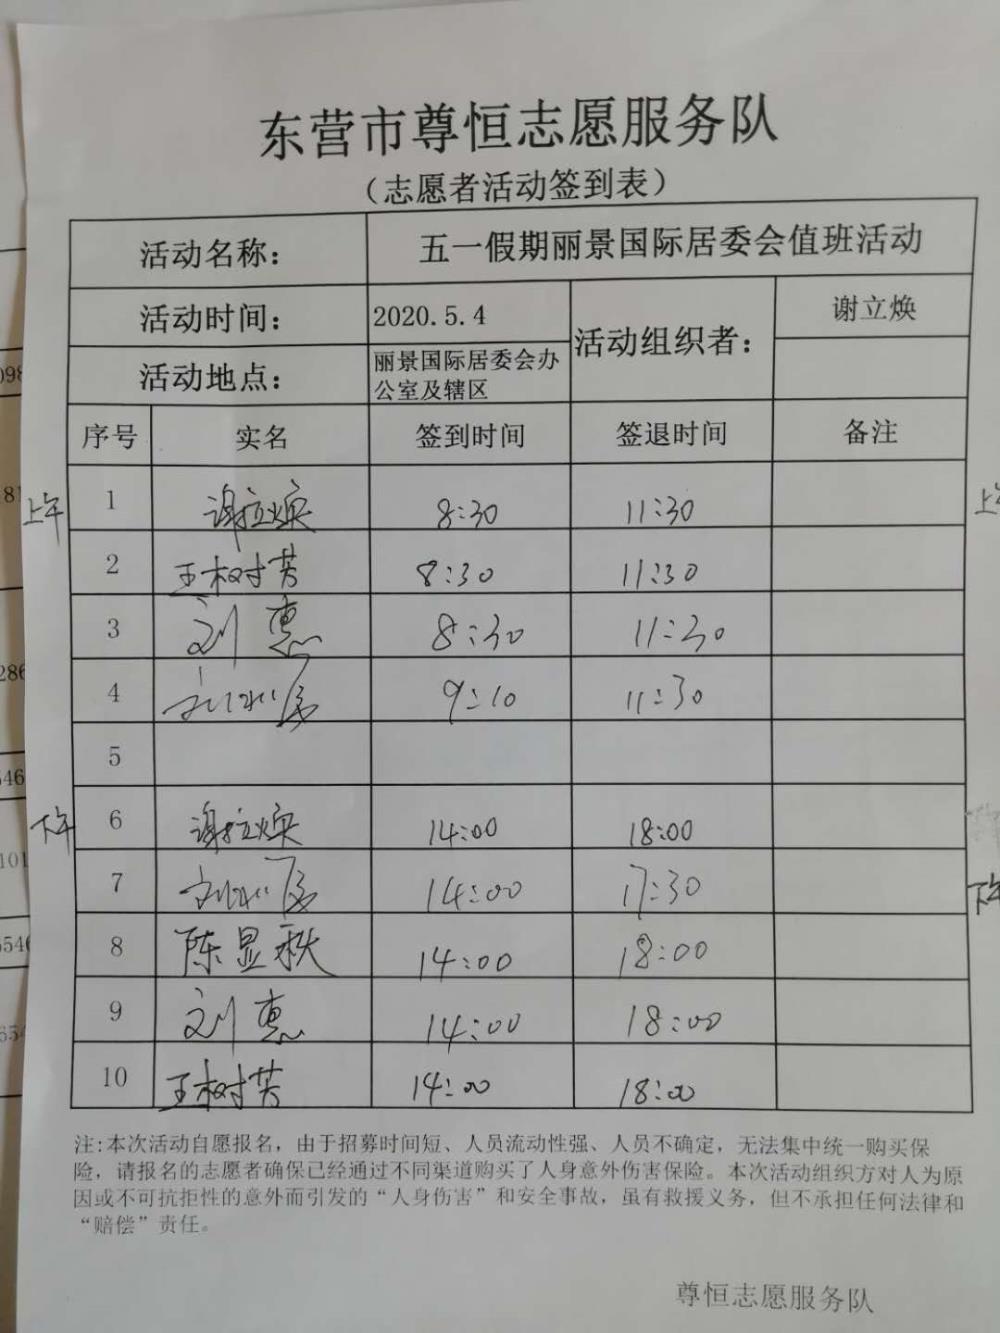 东营市尊恒志愿服务队
（志愿者活动签到表）
活动名称： 五一假期丽景国际居委会值班活动
活动时间： 2020.5.4 活动组织者： 谢立焕
活动地点： 丽景国际居委会办
公室及辖区
序号 实名 签到时间 签退时间 备注
上午 1 谢立焕 8:30 11:30 上
2 王树芳 8:30 11:30
3 刘惠 8:30 11:30
4 9:10 11:30
5
下午 6 谢立焕 14:00 18:00
7 14:00 17:30 下午
8 陈显秋 14:00 18:00
9 刘惠 14:00 18:00
10 王树芳 14:00 18:00
注:本次活动自愿报名，由于招募时间短、人员流动性强、人员不确定，无法集中统一购买保
险，请报名的志愿者确保已经通过不同渠道购买了人身意外伤害保险。本次活动组织方对人为原
因或不可抗拒性的意外而引发的“人身伤害”和安全事故，虽有救援义务，但不承担任何法律和
“赔偿”责任。
尊恒志愿服务队